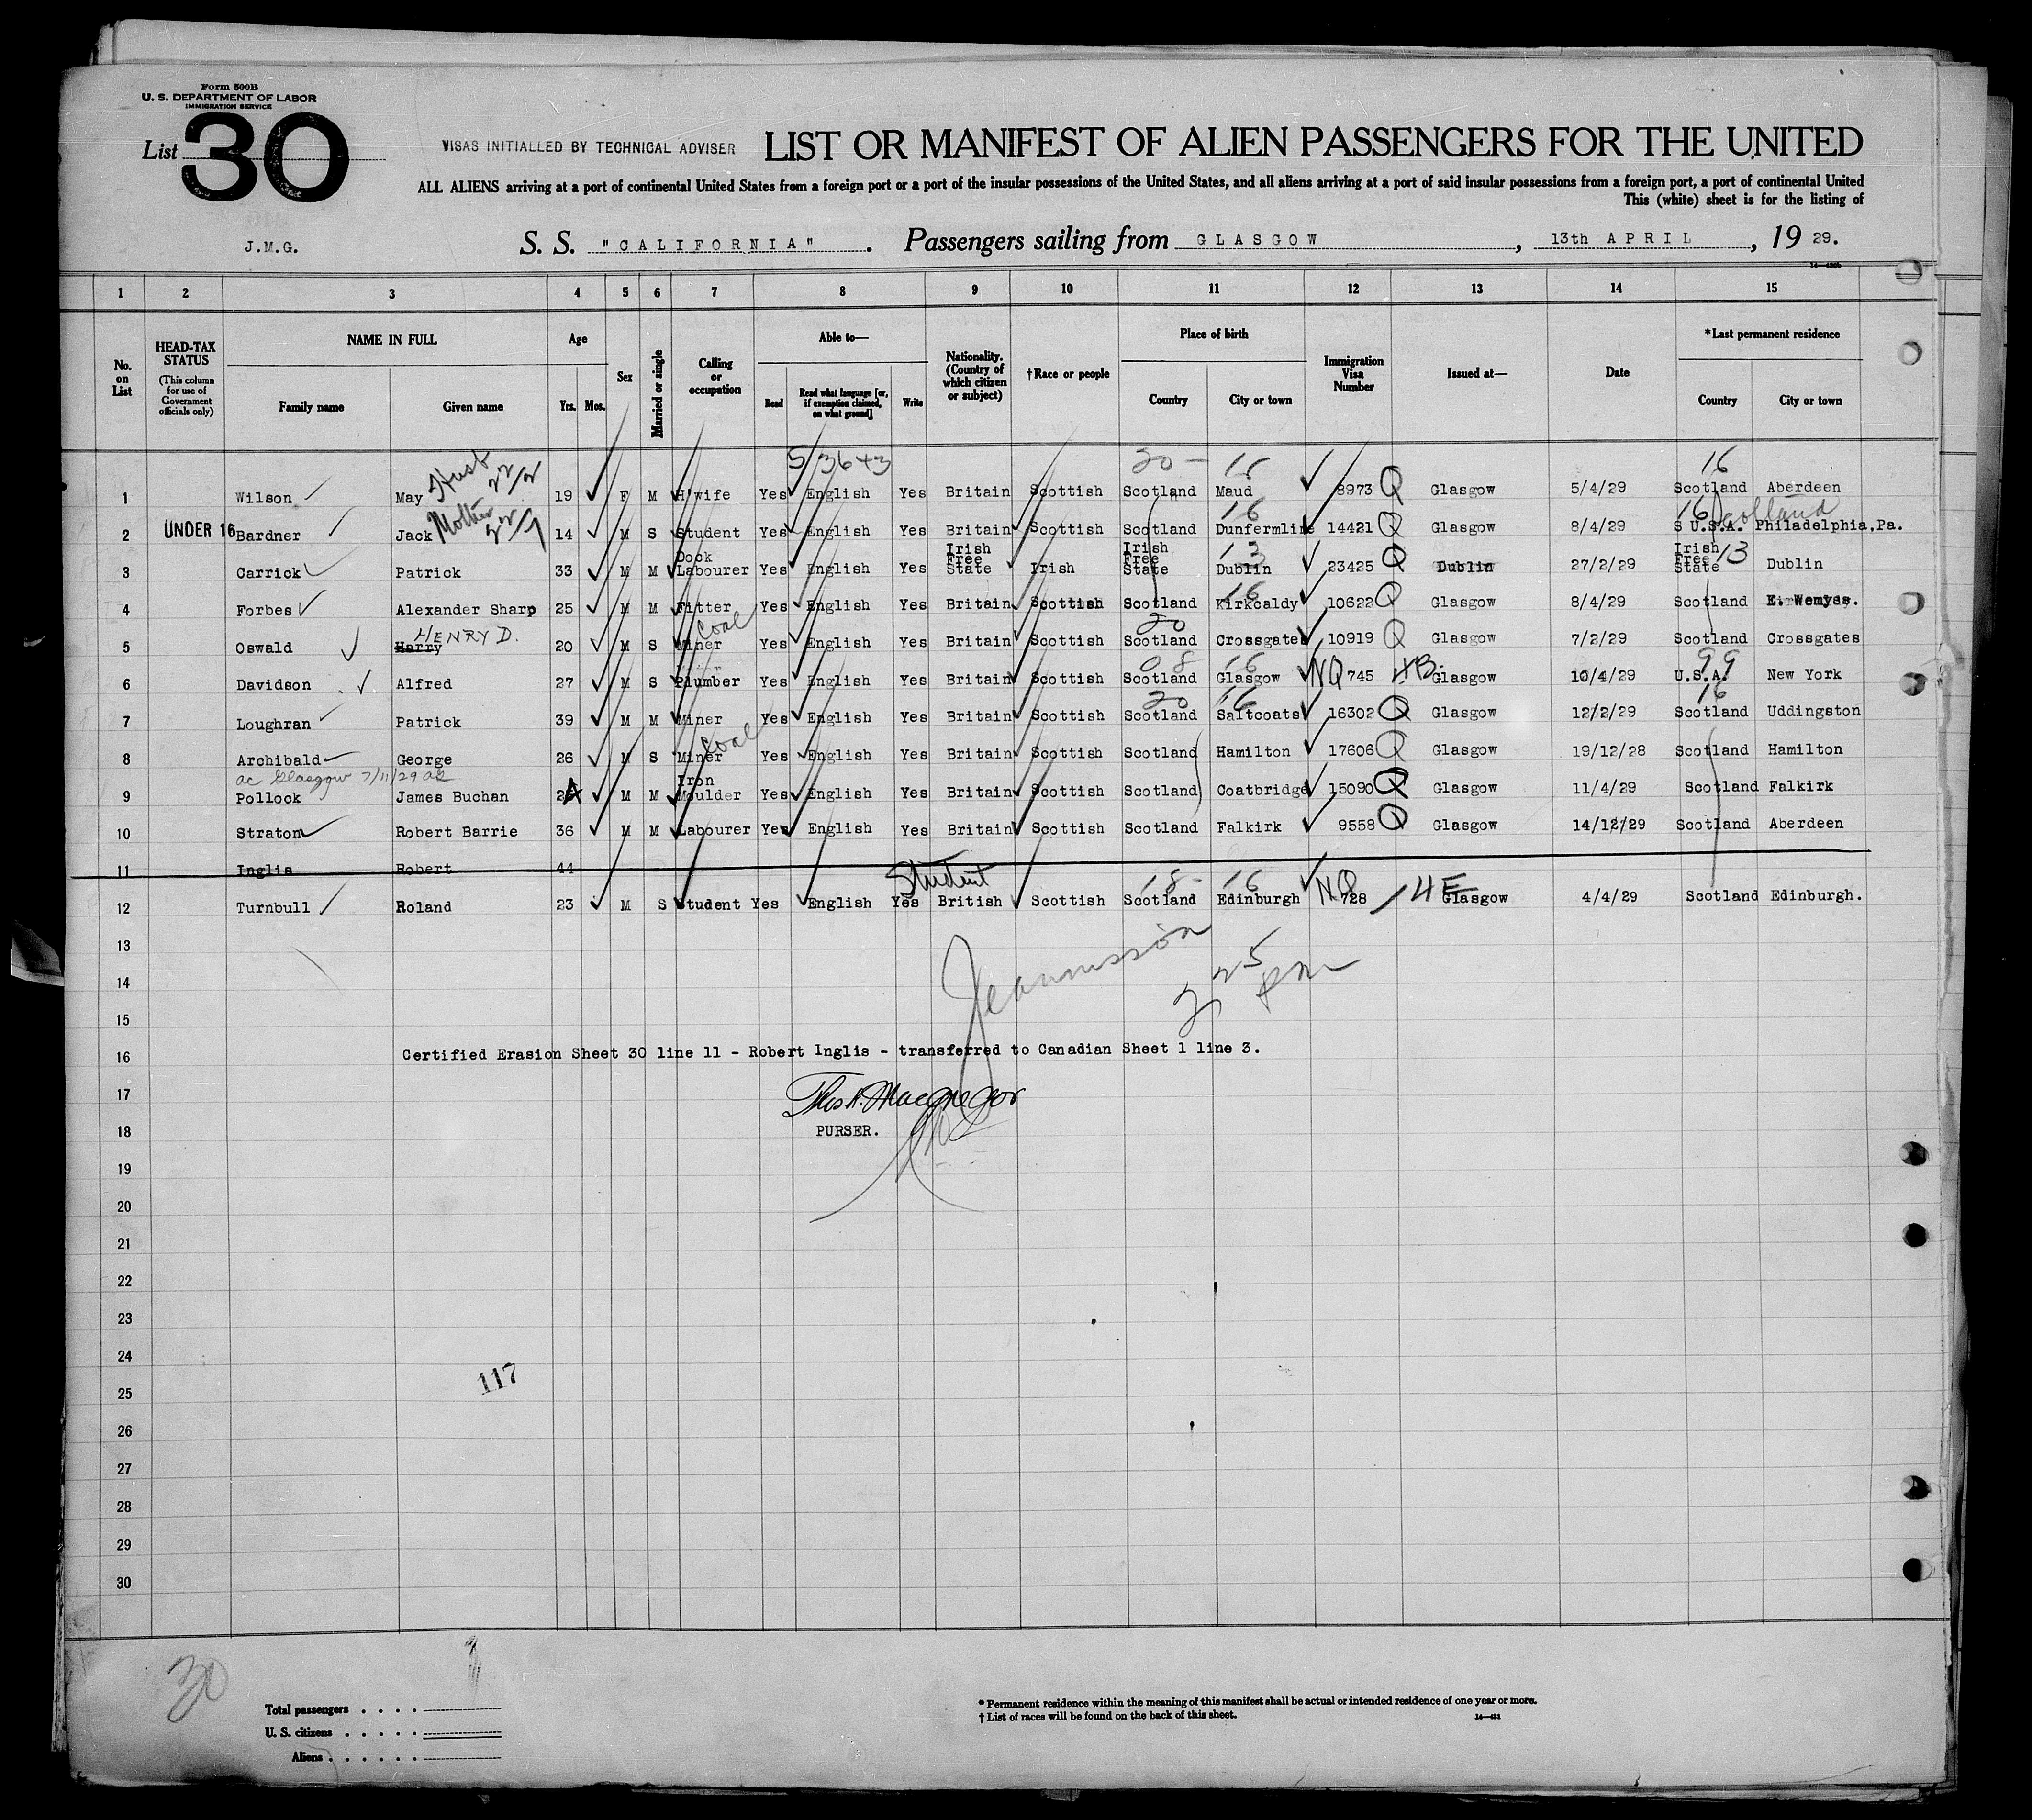 Form 500B
U. S. DEPARTMENT OF LABOR
IMMIGRATION SERVICE
List 30
VISAS INITIALLED BY TECHNICAL ADVISER LIST OR MANIFEST OF ALIEN PASSENGERS FOR THE UNITED
ALL ALIENS arriving at a port of continental United States from a foreign port or a port of the insular possessions of the United States, and all aliens arriving at a port of said insular possessions from a foreign port, a port of continental United
This (white) sheet is for the listing of
J.M.G. S. S. "CALIFORNIA". Passengers sailing from GLASGOW, 13th APRIL, 19 29.
1 2 3 4 5 6 7 8 9 10 11 12 13 14 15
No. on List
HEAD-TAX STATUS
(This column for use of Government officials only)
NAME IN FULL
Family name Given name
Age
Yrs. Mos.
Sex
Married or single
Calling or occupation
Able to—
Read Read what language [or, if exemption claimed, on what ground] Write
Nationality. (Country of which citizen or subject)
†Race or people
Place of birth
Country City or town
Immigration Visa Number
Issued at—
Date
*Last permanent residence
Country City or town
Husb 5/3643 20 - 16
1 Wilson May 19 F M H'wife Yes English Yes Britain Scottish Scotland Maud 8973 Q Glasgow 5/4/29 Scotland Aberdeen
Mother 16 16 Scotland
2 UNDER 16 Bardner Jack 14 M S Student Yes English Yes Britain Scottish Scotland Dunfermline 14421 Q Glasgow 8/4/29 U.S.A. Philadelphia,Pa.
3 Carrick Patrick 33 M M Dock Labourer Yes English Yes Irish Free State Irish Irish Free State Dublin 23425 Q Dublin 27/2/29 Irish Free State 13 Dublin
4 Forbes Alexander Sharp 25 M M Fitter Yes English Yes Britain Scottish Scotland Kirkcaldy 10622 Q Glasgow 8/4/29 Scotland E. Wemyss.
HENRY D. Coal 20
5 Oswald Harry 20 M S Miner Yes English Yes Britain Scottish Scotland Crossgates 10919 Q Glasgow 7/2/29 Scotland Crossgates
16 99
6 Davidson Alfred 27 M S Plumber Yes English Yes Britain Scottish Scotland Glasgow NQ 745 4B Glasgow 10/4/29 U.S.A. New York
20 16 16
7 Loughran Patrick 39 M M Miner Yes English Yes Britain Scottish Scotland Saltcoats 16302 Q Glasgow 12/2/29 Scotland Uddingston
Coal
8 Archibald George 26 M S Miner Yes English Yes Britain Scottish Scotland Hamilton 17606 Q Glasgow 19/12/28 Scotland Hamilton
ac Glasgow 7/11/29
9 Pollock James Buchan M M Iron Moulder Yes English Yes Britain Scottish Scotland Coatbridge 15090 Q Glasgow 11/4/29 Scotland Falkirk
10 Straton Robert Barrie 36 M M Labourer Yes English Yes Britain Scottish Scotland Falkirk 9558 Q Glasgow 14/12/29 Scotland Aberdeen
11 Inglis Robert 44
Student 18 - 16
12 Turnbull Roland 23 M S Student Yes English Yes British Scottish Scotland Edinburgh NQ 728 4E Glasgow 4/4/29 Scotland Edinburgh.
13
14
15
16 Certified Erasion Sheet 30 line 11 - Robert Inglis - transferred to Canadian Sheet 1 line 3.
17 Thos. R. Macgregor
18 PURSER.
19
20
21
22
23
24
117
25
26
27
28
29
30
30
Total passengers
U. S. citizens
Aliens
* Permanent residence within the meaning of this manifest shall be actual or intended residence of one year or more.
† List of races will be found on the back of this sheet.